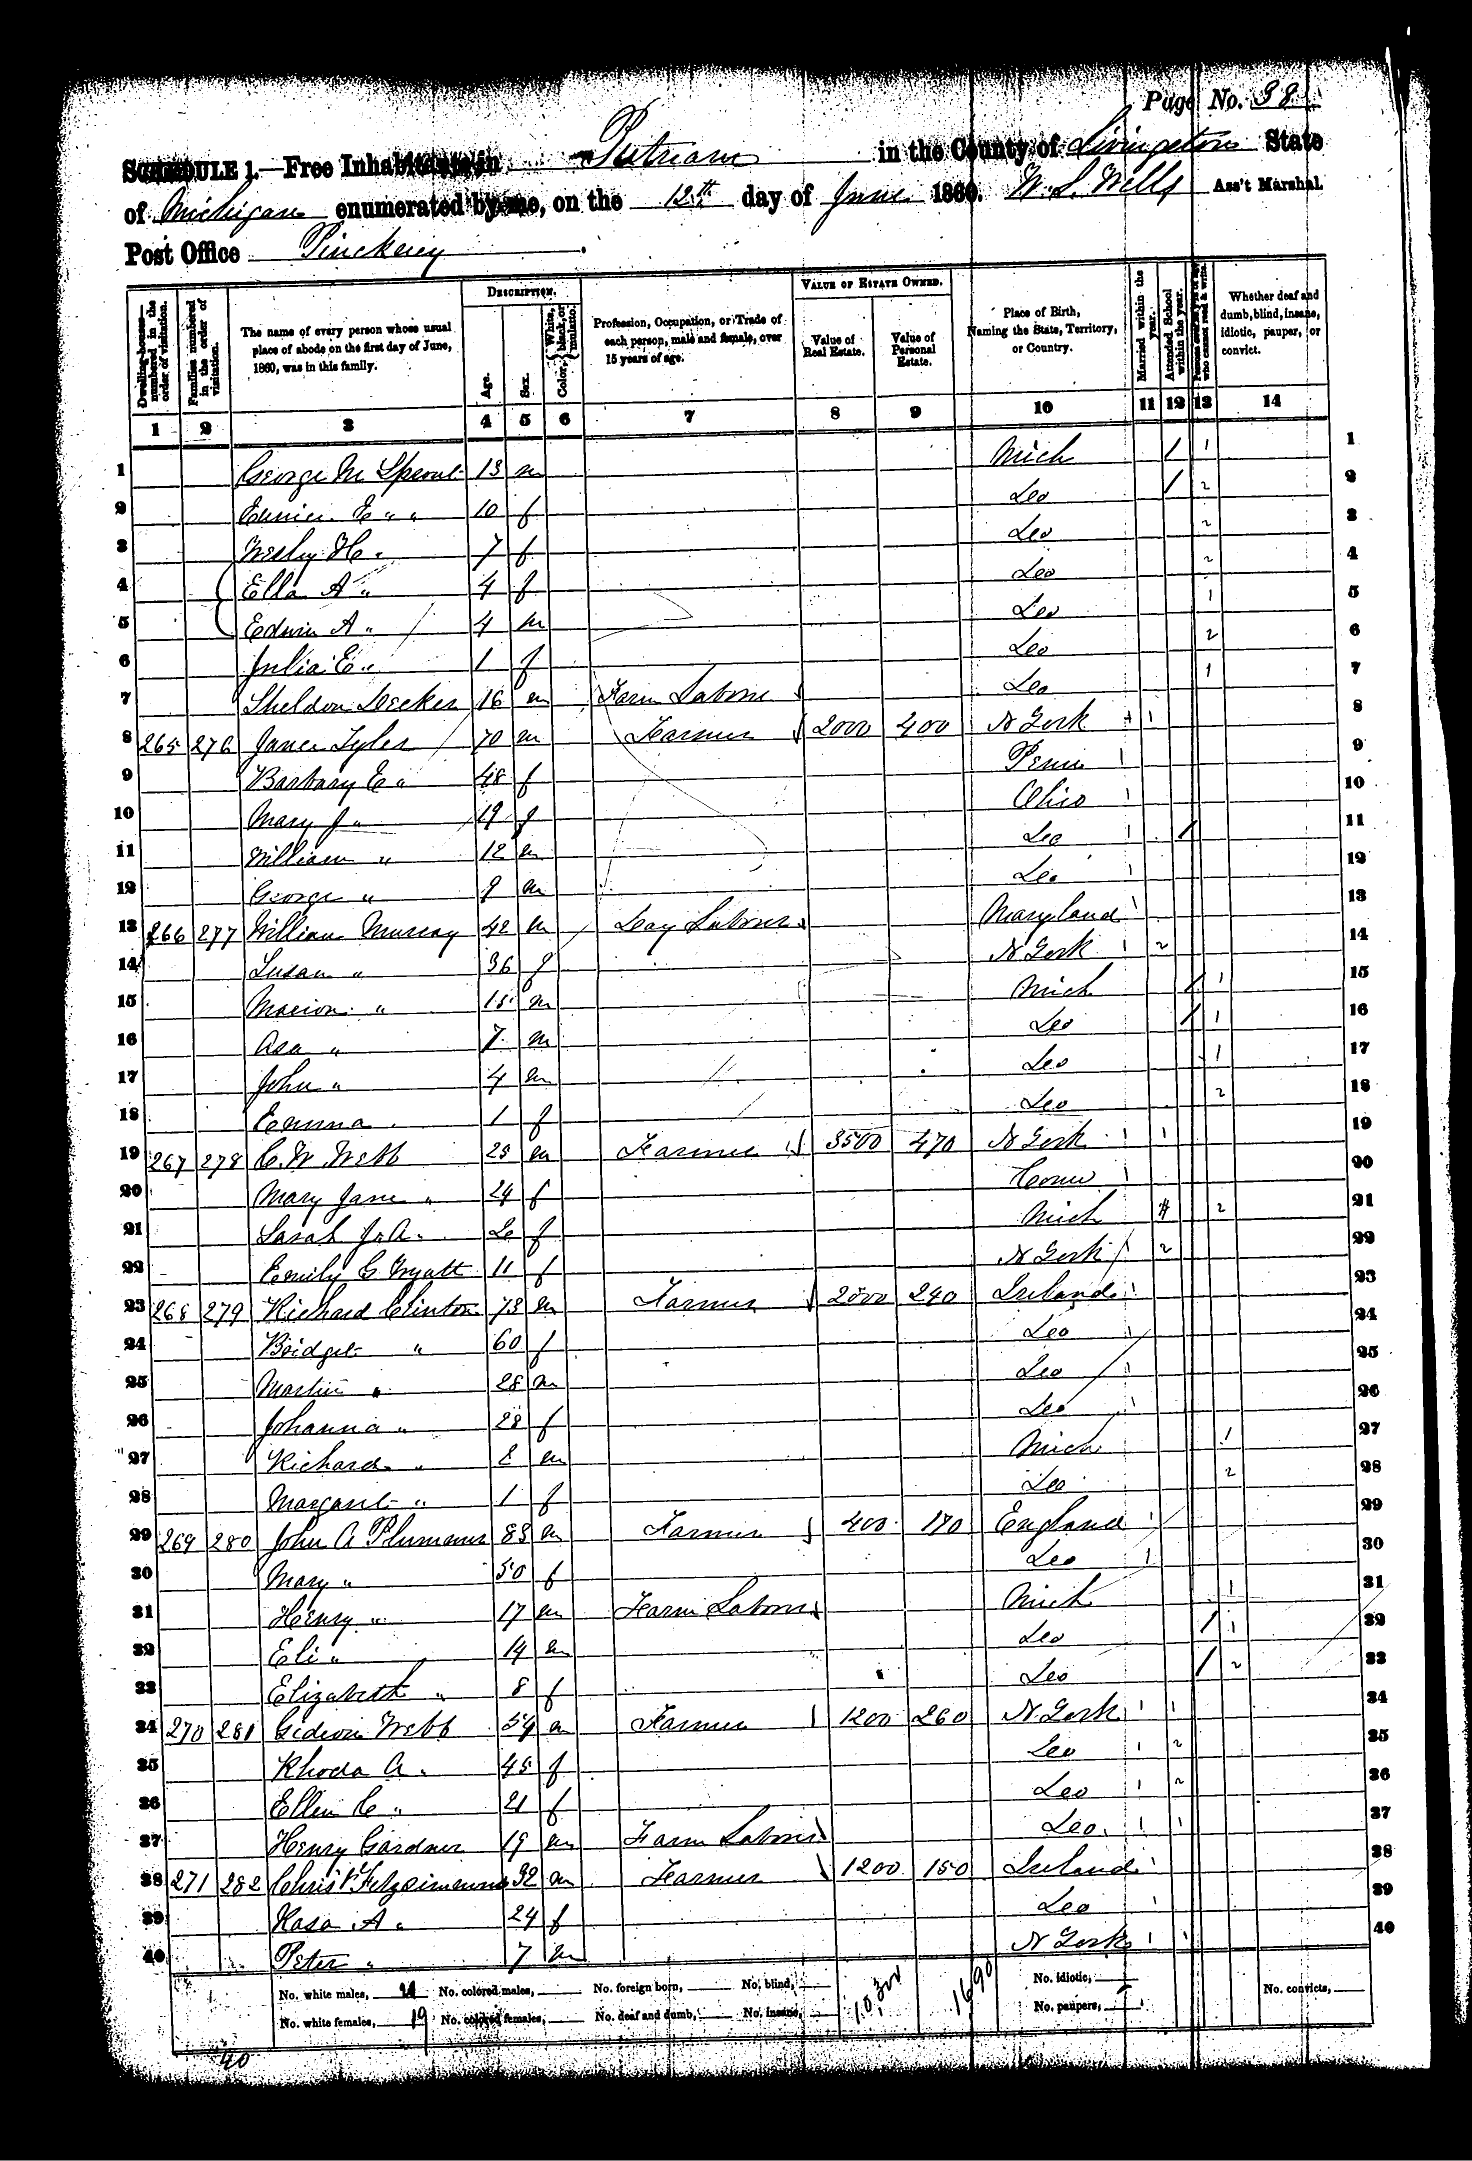 Page No. 38
SCHEDULE 1.—Free Inhabitants in Putnam in the County of Livingston State
of Michigan enumerated by me, on the 12th day of June 1860. W. S. Wells Ass't Marshal.
Post Office Pinckney
Dwelling-houses—numbered in the order of visitation. Families numbered in the order of visitation. The name of every person whose usual place of abode on the first day of June, 1860, was in this family. DESCRIPTION. Age. Sex. Color, {White, black, or mulatto. Profession, Occupation, or Trade of each person, male and female, over 15 years of age. VALUE OF ESTATE OWNED. Value of Real Estate. Value of Personal Estate. Place of Birth, Naming the State, Territory, or Country. Married within the year. Attended School within the year. Whether deaf and dumb, blind, insane, idiotic, pauper, or convict.
1 2 3 4 5 6 7 8 9 10 11 12 13 14
1 George M Sprout 13 m Mich / 1 1
2 Eunice E " " 10 f Do / 2 2
3 Wesley H " 7 f Do 2 3
4 Ella A " 4 f Do 2 4
5 Edwin A " 4 m Do 1 5
6 Julia E " 1 f Do 2 6
7 Sheldon Decker 16 m Farm Laborer Do 1 7
8 265 276 Tyler 70 m Farmer 2000 400 N York 1 8
9 Barbary E " 48 f Penn 9
10 Mary J " 19 f Ohio 10
11 William " 12 m Do / 11
12 George " 9 m Do 12
13 266 277 William Murray 42 m Day Laborer Maryland 13
14 Susan " 36 f N York 2 14
15 Marion " 15 m Mich / 1 15
16 Asa " 7 m Do / 1 16
17 John " 4 m Do 1 17
18 Emma 1 f Do 2 18
19 267 278 C. W. Webb m Farmer 3500 470 N York 1 19
20 Mary Jane " 24 f Conn 20
21 Sarah J. A. f Mich 2 21
22 Emily G Wyatt 11 f N York 2 22
23 268 279 Richard Clinton 73 m Farmer 2000 240 Ireland 23
24 Bridget " 60 f Do 24
25 Martin " 28 m Do 25
26 Johanna " 28 f Do 26
27 Richard " m Mich 1 27
28 Margaret " 1 f Do 2 28
29 269 280 John A Plummer m Farmer 400 170 England 29
30 Mary " 50 f Do 30
31 Henry " 17 m Farm Laborer Mich 1 31
32 Eli " 14 m Do / 1 32
33 Elizabeth " 8 f Do / 2 33
34 270 281 Gideon Webb 54 m Farmer 1200 260 N. York 1 34
35 Rhoda A " 45 f Do 2 35
36 Ellen C " 21 f Do 2 36
37 Henry Gardner 19 m Farm Laborer Do 1 37
38 271 282 Chris Fitzsimmons 32 m Farmer 1200 150 Ireland 38
39 A " 24 f Do 39
40 Peter " 7 m N York 1 40
No. white males, 21 No. colored males, No. foreign born, No. blind, 10,300 1690 No. idiotic, No. convicts,
No. white females, 19 No. colored females, No. deaf and dumb, No. insane, No. paupers,
40